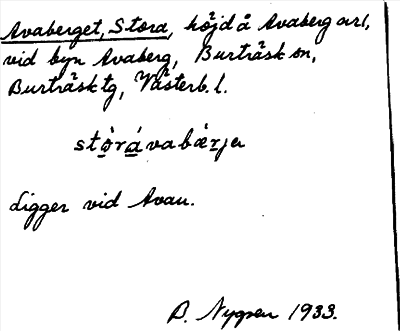 Avaberget, Stora, höjd å Avaberg arl,
vid byn Avaberg, Burträsk sn,
Burträsk tg, Västerb. l.
stò̱rá̱vabæ̀rje
Ligger vid Avan.
B. Nygren 1933.